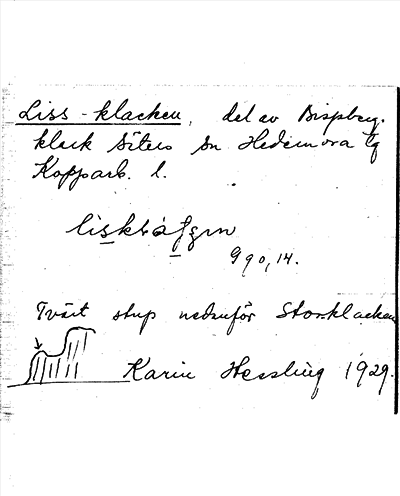 Liss-klacken, del av Bispberg.
klack Säters sn Hedemora tg
Kopparb. l.
G 90, 14.
Tvärt stup nedanför Storklacken
Karin Hessling 1929.